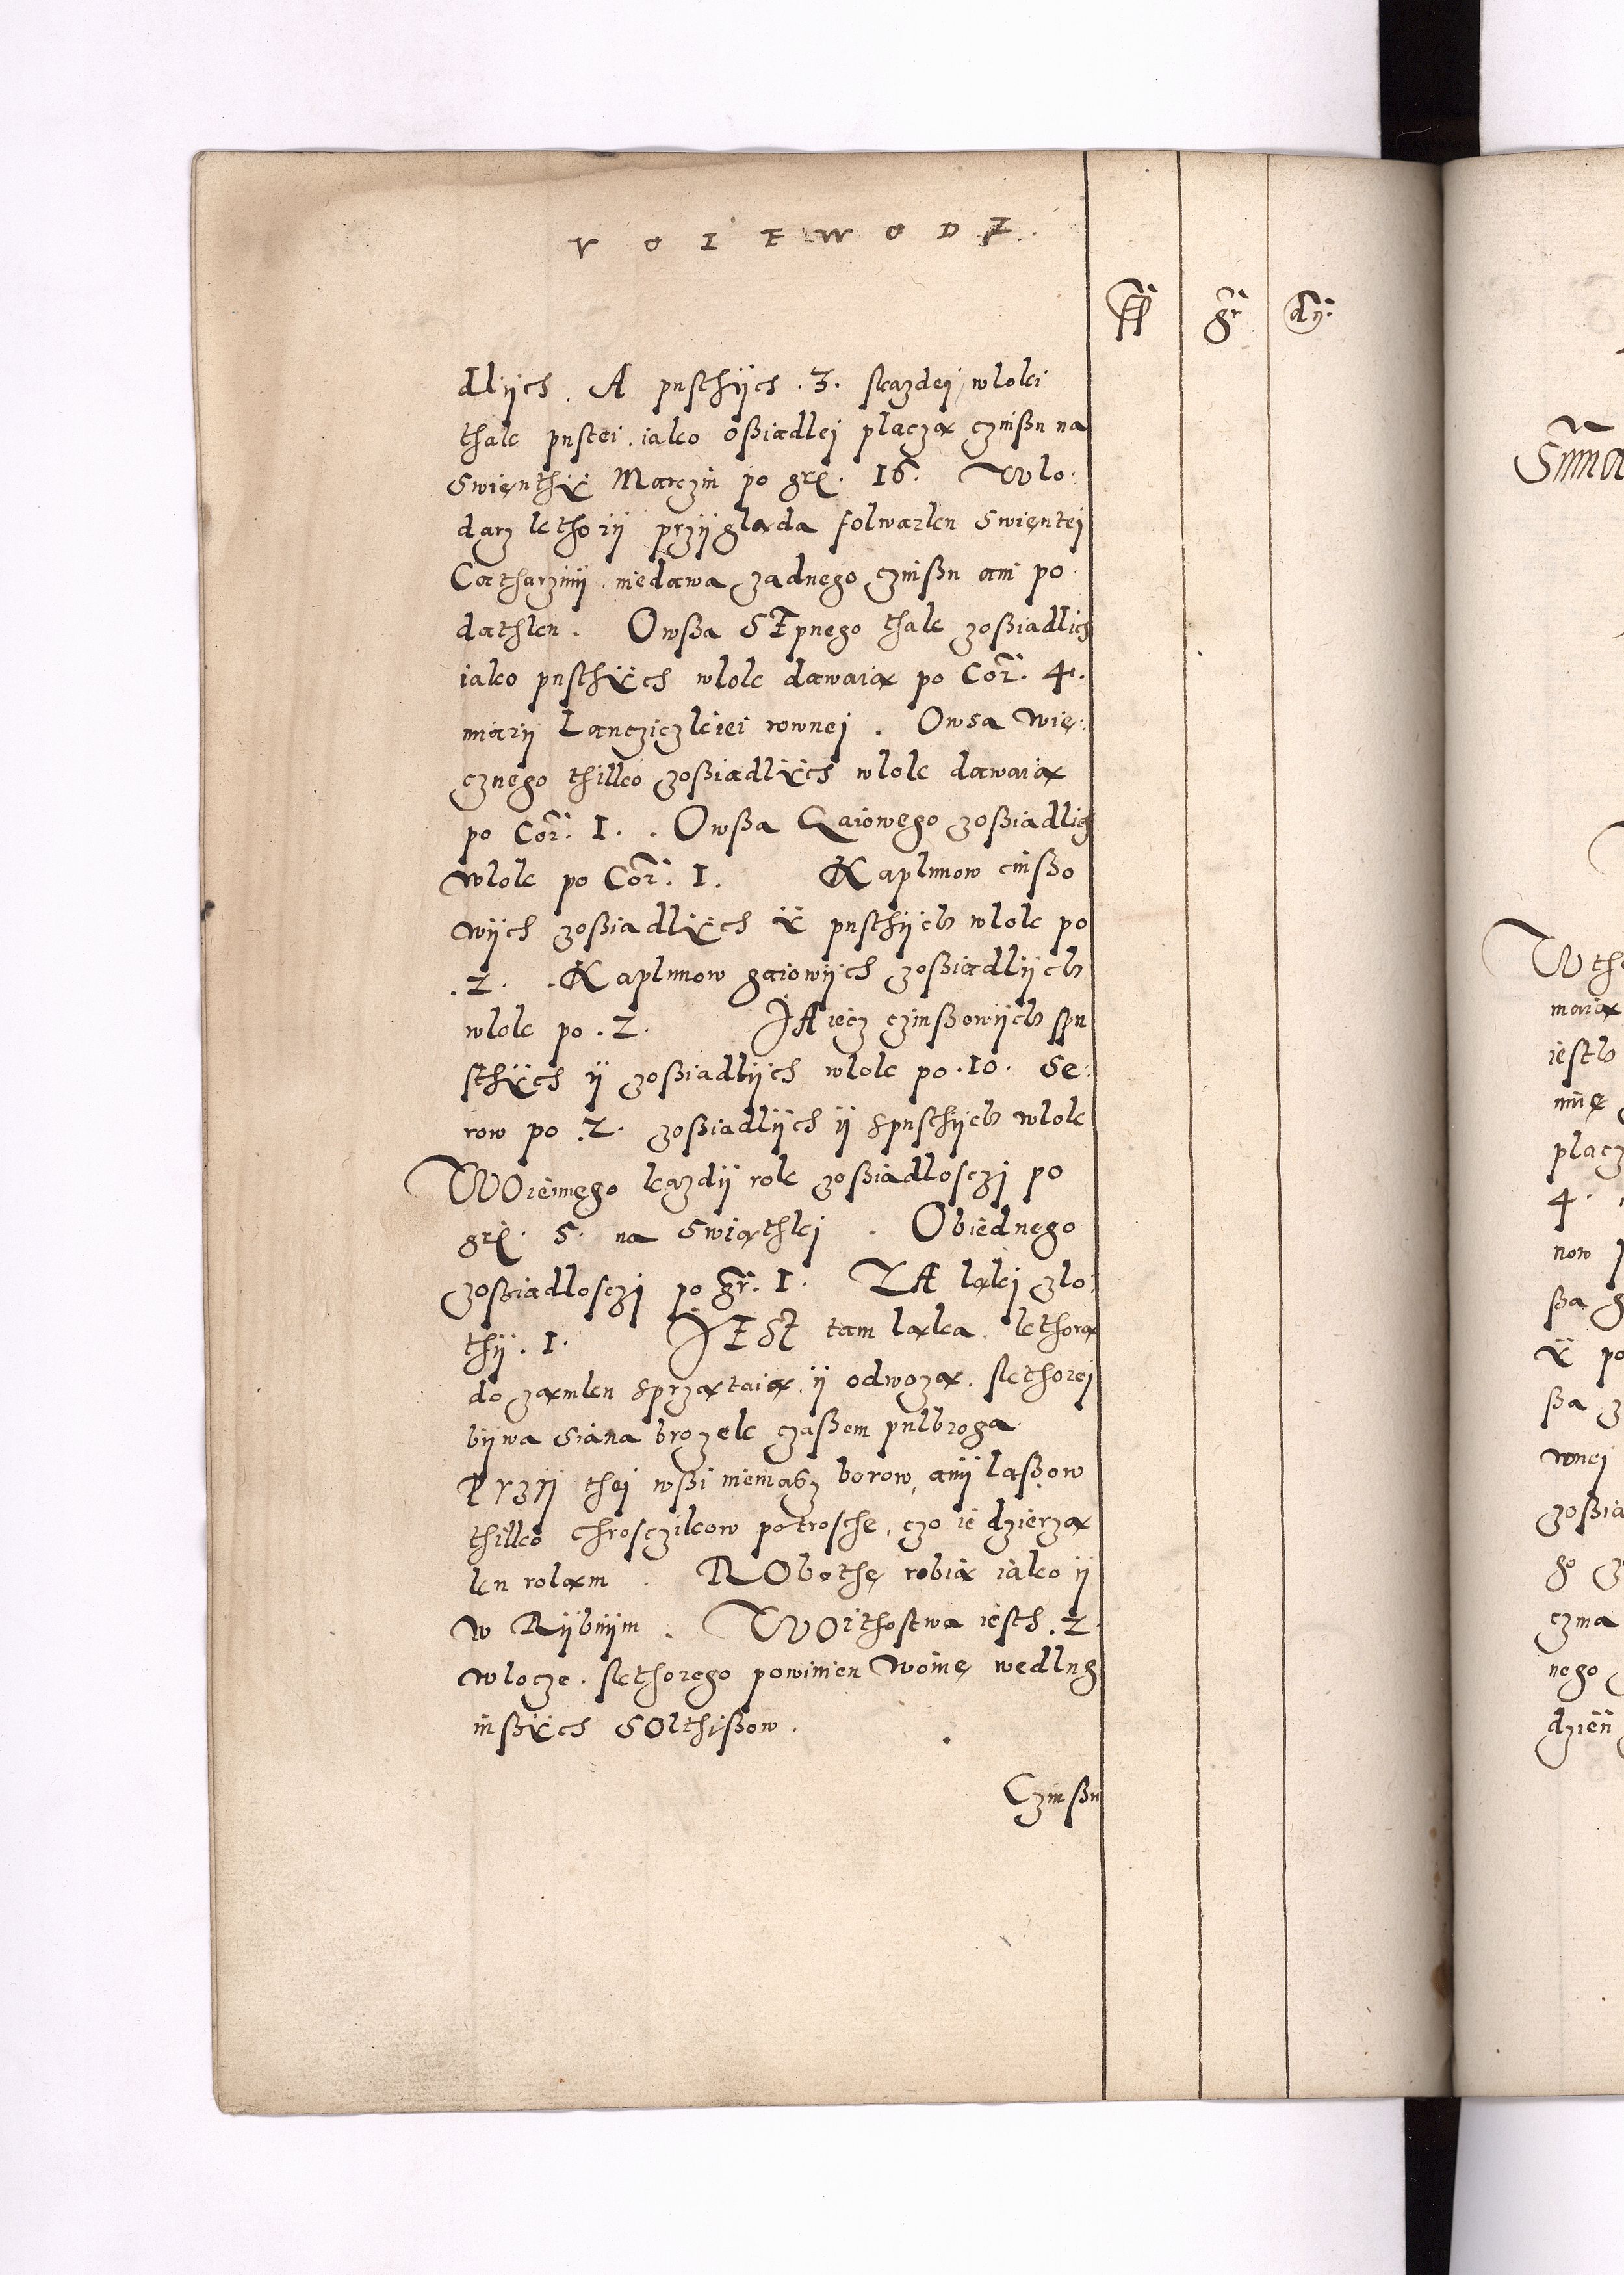 VOIEWODZ.
ff gr dn.
dlijch. A pusthijch .3. skazdej wloki
thak pustei iako oßiadlej placzą czinßu na
Swięnthÿ Marczin po grͦ. 16. Wlo:
darz kthorij przijgląda folwarku Swiętej
Catharzinij niedawa zadnego czinßu ani po
dathku. Owßa SEpnego thak zoßiadlich
iako pusthÿch wlok dawaią po Cor. 4.
miarij Lancziczkiei rownej. Owsa Wię:
cznego thilko zoßiadlÿch wlok dawaią
po Cor. 1. Owßa Gaiowego zoßiadlich
wlok po Cor. 1. Kaplunow cinßo
wijch zoßiadlÿch ÿ pusthijch wlok po
.2. Kaplunow gaiowijch zoßiadlijch
wlok po .2. JAiecz czinßowijch spu
sthÿch ij zoßiadlijch wlok po .10. Se:
row po .2. zoßiadlijch ij spusthijch wlok
WOiennego kazdij rok zoßiadlosczj po
grͦ. 5. na Swiąthkj. Obiednego
zoßiadlosczj po gr. 1. ZA ląkj zlo:
thij. 1. JEST tam ląka, kthorą
do zamku sprzątaią, ij odwozą, skthorej
bijwa siana brozek czaßem pulbroga
PRZIj thej wßi niemaß borow, anij laßow
thilko chrosczikow potrosche, czo ie dzierzą
ku rolam. RObothę robią iako ij
w Rijbnijm. WOithostwa iesth .2.
wlocze. skthorego powinien woinę wedlug
inßÿch SOlthißow.
Czinßu